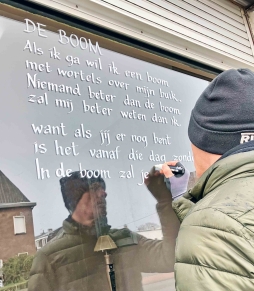 DE BOOM
Als ik ga wil ik een boom
met wortels over mijn buik..
Niemand beter dan de boom,
zal mij beter weten dan ik.
want als jij er nog bent
is het vanaf die dag zonde
In de boom zal je